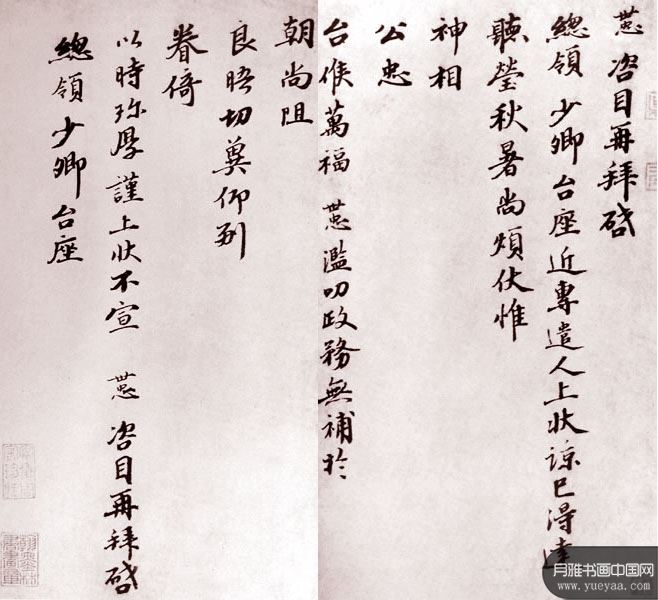 咨目再拜啓
總領少卿台座近專遣人上狀諒已得達
聽瑩秋暑尚煩伏惟
神相
公忠
台候萬福 濫叨政務無補於
朝尚阻
良晤切冀仰副
眷倚
以時珎厚謹上狀不宣 咨目再拜啓
總領少卿台座
月雅书画中国网
www.yueyaa.com